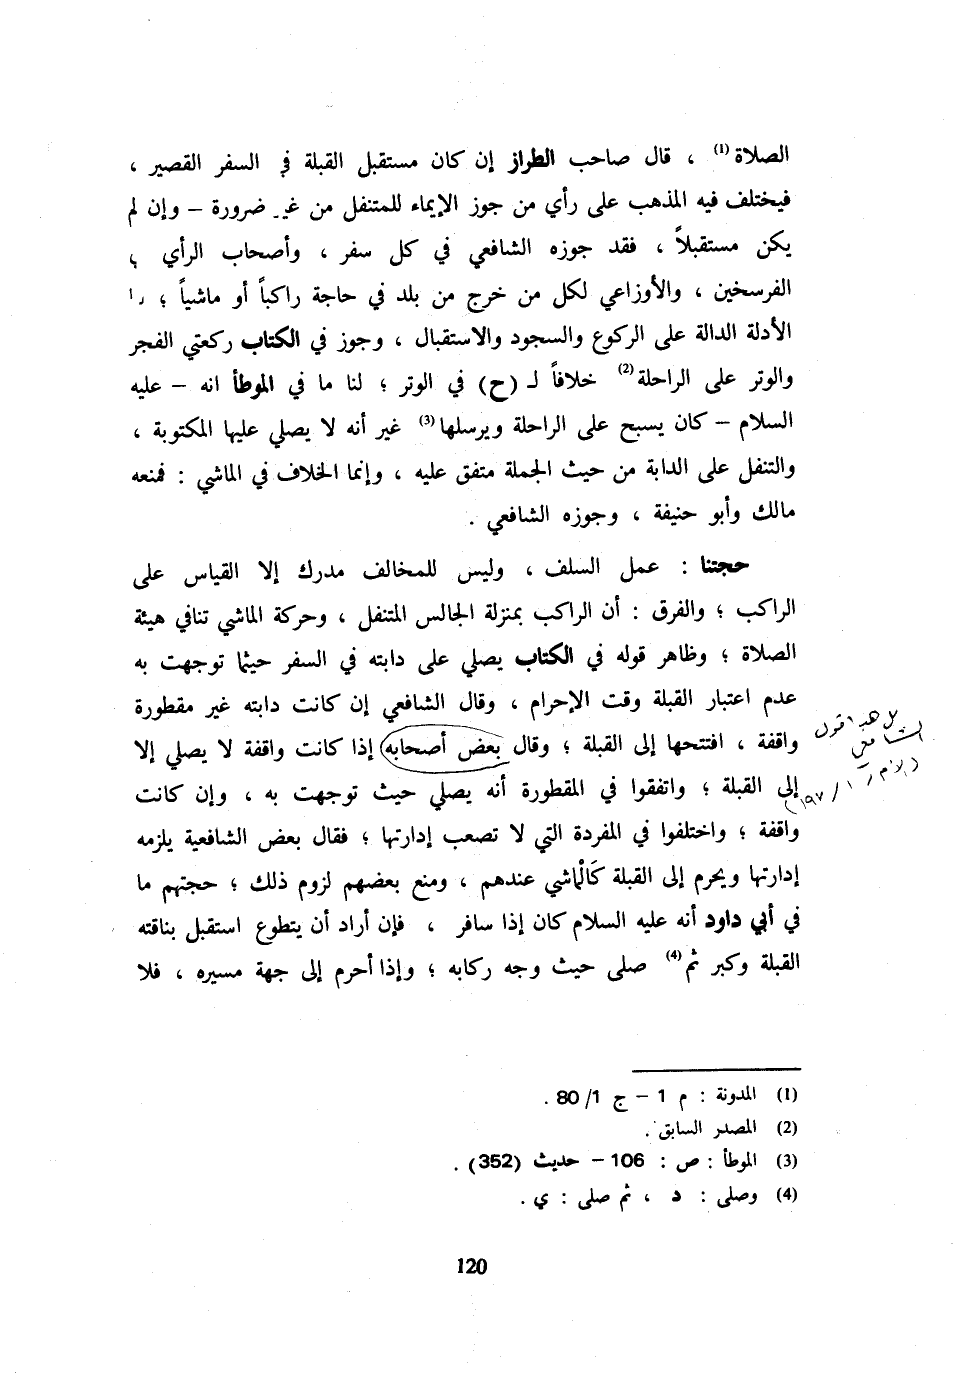 الصلاة(1) ، قال صاحب الطراز إن كان مستقبل القبلة في السفر القصير ،
فيختلف فيه المذهب على رأي من جوز الإيماء للمتنفل من غير ضرورة – وإن لم
يكن مستقبلاً ، فقد جوزه الشافعي في كل سفر ، وأصحاب الرأي
الفرسخين ، والأوزاعي لكل من خرج من بلد في حاجة راكباً أو ماشياً ؛
الأدلة الدالة على الركوع والسجود والاستقبال ، وجوز في الكتاب ركعتي الفجر
والوتر على الراحلة(2) خلافاً لـ (ح) في الوتر ؛ لنا ما في الموطأ انه – عليه
السلام – كان يسبح على الراحلة ويرسلها(3) غير أنه لا يصلي عليها المكتوبة ،
والتنفل على الدابة من حيث الجملة متفق عليه ، وإنما الخلاف في الماشي : فمنعه
مالك وأبو حنيفة ، وجوزه الشافعي .
حجتنا : عمل السلف ، وليس للمخالف مدرك إلا القياس على
الراكب ؛ والفرق : أن الراكب بمنزلة الجالس المتنفل ، وحركة الماشي تنافي هيئة
الصلاة ؛ وظاهر قوله في الكتاب يصلي على دابته في السفر حيثما توجهت به
عدم اعتبار القبلة وقت الإحرام ، وقال الشافعي إن كانت دابته غير مقطورة
واقفة ، افتتحها إلى القبلة ؛ وقال بعض أصحابه إذا كانت واقفة لا يصلي إلا
إلى القبلة ؛ واتفقوا في المقطورة أنه يصلي حيث توجهت به ، وإن كانت
واقفة ؛ واختلفوا في المفردة التي لا تصعب إدارتها ؛ فقال بعض الشافعية يلزمه
إدارتها ويحرم إلى القبلة كَالْماشي عندهم ، ومنع بعضهم لزوم ذلك ؛ حجتهم ما
في أبي داود أنه عليه السلام كان إذا سافر ، فإن أراد أن يتطوع استقبل بناقته
القبلة وكبر ثم(4) صلى حيث وجه ركابه ؛ وإذا أحرم إلى جهة مسيره ، فلا
بل هذا قول
الشافعي
(الأم ١/١٩٧)
(1) المدونة : م 1 – ج 1/80 .
(2) المصدر السابق .
(3) الموطأ : ص : 106 – حديث (352) .
(4) وصلى : د ، ثم صلى : ي .
120